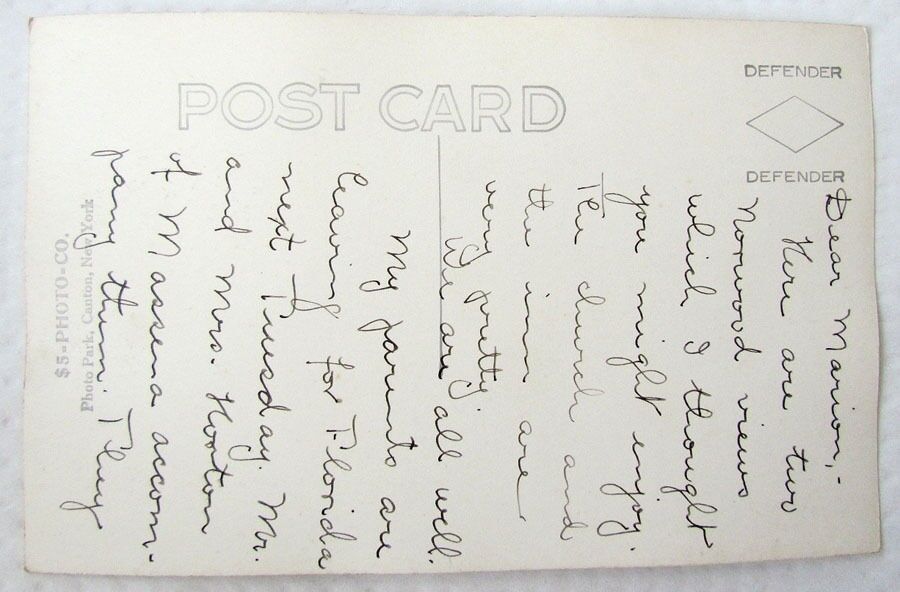 POST CARD
DEFENDER
DEFENDER
$5-PHOTO-CO.
Photo Park, Canton, New York
Dear Marion,-
Here are two
Norwood views
which I thought
you might enjoy.
The church and
the inn are
very pretty.
We are all well.
My parents are
leaving for Florida
next Tuesday. Mr.
and Mrs. Hooton
of Massena accom-
pany them. They